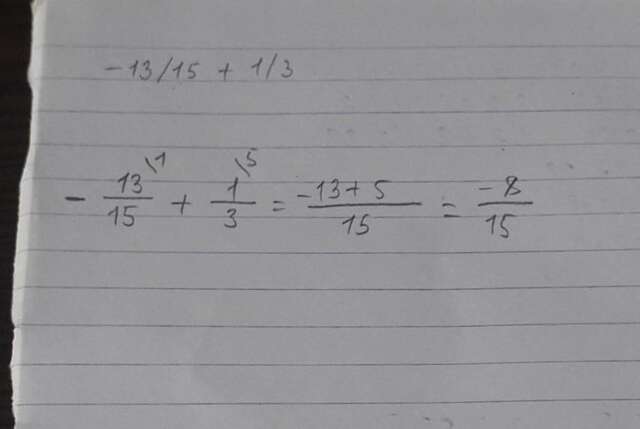 -13/15 + 1/3
- 13\1/15 + 1\5/3 = -13+5/15 = -8/15